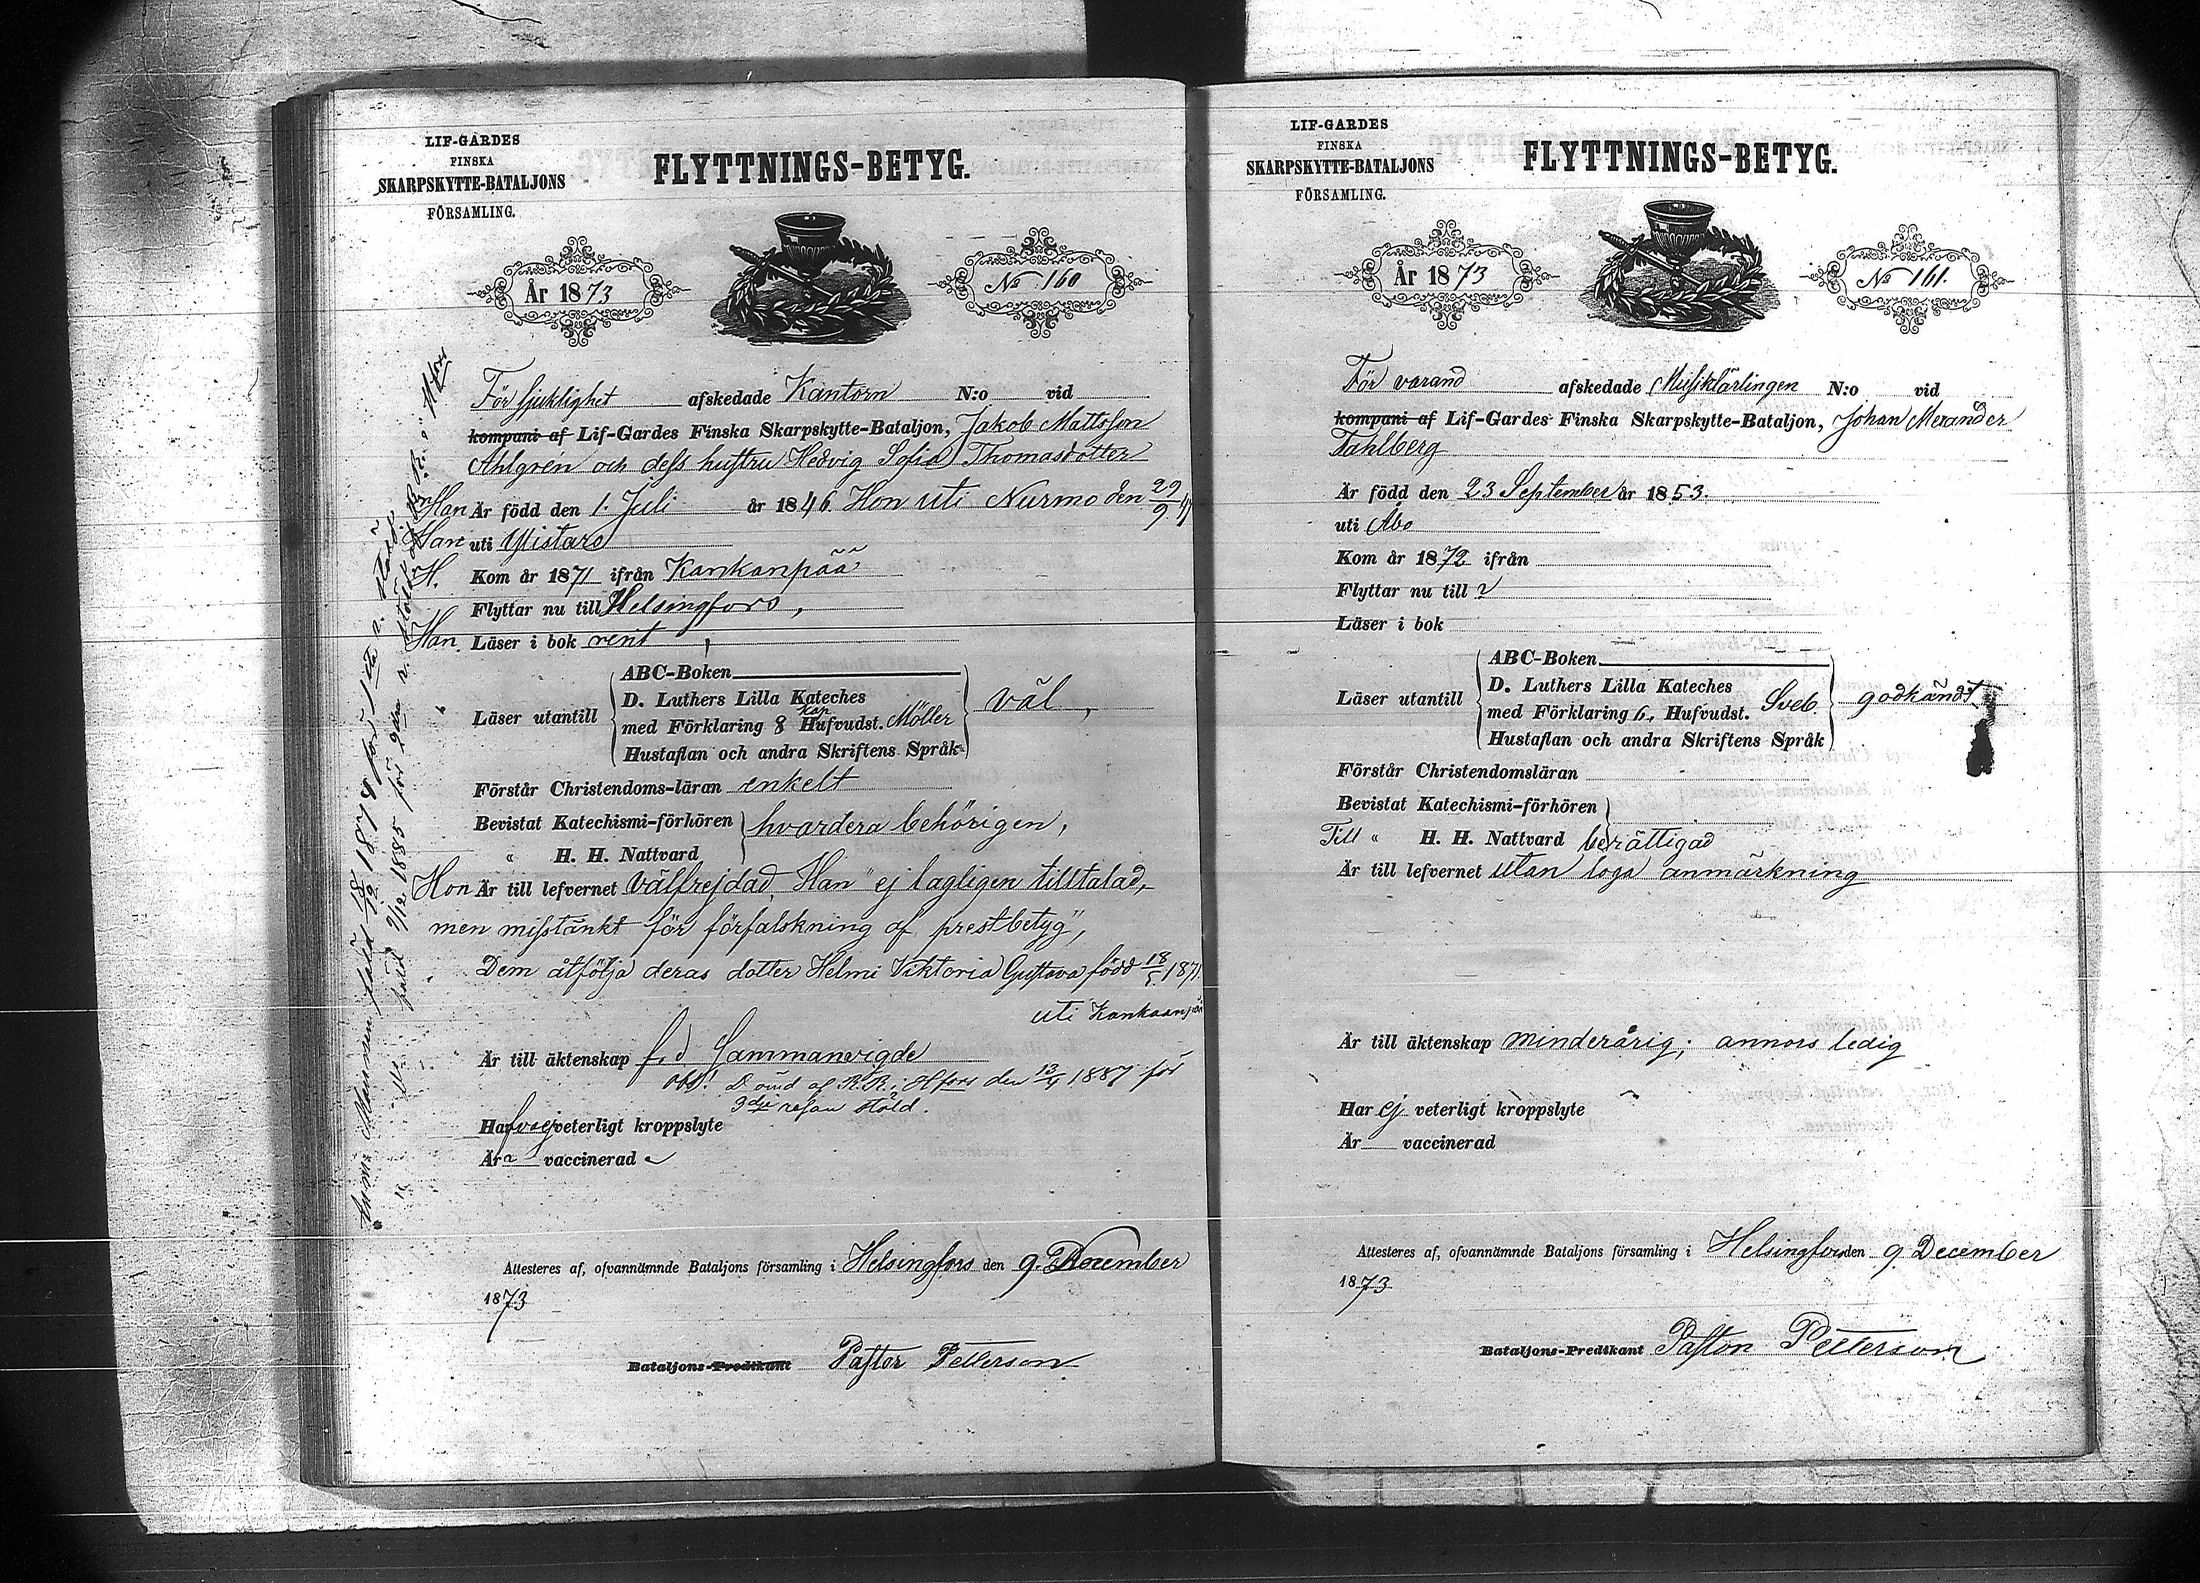 LIF-GARDES
FINSKA
SKARPSKYTTE-BATALJONS
FÖRSAMLING.
FLYTTNINGS-BETYG.
År 1873
No 160
För sjuklighet afskedade Kantorn N:o vid
kompani af Lif-Gardes Finska Skarpskytte-Bataljon, Jakob Mattsson
Ahlgrén och dess hustru Hedvig Sofia Thomasdotter
Han Är född den 1. Juli år 1846 Hon uti Nurmo den 29/9
Han uti Ylistaro
H. Kom år 1871 ifrån Kankanpää
Flyttar nu till Helsingfors,
Han Läser i bok rent,
Läser utantill
ABC-Boken
D. Luthers Lilla Kateches
med Förklaring 8 kap Hufvudst. Möller
Hustaflan och andra Skriftens Språk
väl,
Förstår Christendoms-läran enkelt
Bevistat Katechismi-förhören
" H. H. Nattvard
hvardera behörigen,
Hon Är till lefvernet välfrejdad, Han "ej lagligen tilltalad,
men misstänkt för förfalskning af prestbetyg",
Dem åtfölja deras dotter Helmi Viktoria Gustava född 18/5 1871
uti Kankaanpää
Är till äktenskap f. d. Sammanvigde
Obs! Dömd af R. R. i Hfors den 13/4 1887 för
3dje resan stöld.
Har veterligt kroppslyte
Är vaccinerad
Attesteres af, ofvannämnde Bataljons församling i Helsingfors den 9. December
1873
Bataljons-Predikant Pastor Petterson
stöld 18/12 1878 för 1sta r. stöld
9/12 1885 för 2dra r. stöld af R. R. i Hfors
LIF-GARDES
FINSKA
SKARPSKYTTE-BATALJONS
FÖRSAMLING.
FLYTTNINGS-BETYG.
År 1873
No 161.
För varand afskedade Musiklärlingen N:o vid
kompani af Lif-Gardes Finska Skarpskytte-Bataljon, Johan Alexander
Fahlberg
Är född den 23 September år 1853.
uti Åbo
Kom år 1872 ifrån
Flyttar nu till ?
Läser i bok
Läser utantill
ABC-Boken
D. Luthers Lilla Kateches
med Förklaring 6, Hufvudst. Sveb.
Hustaflan och andra Skriftens Språk
godkändt
Förstår Christendomsläran
Bevistat Katechismi-förhören
Till " H. H. Nattvard berättigad
Är till lefvernet utan loga anmärkning
Är till äktenskap minderårig; annors ledig
Har ej veterligt kroppslyte
Är vaccinerad
Attesteres af, ofvannämnde Bataljons församling i Helsingfors den 9. December
1873
Bataljons-Predikant Pastor Petterson